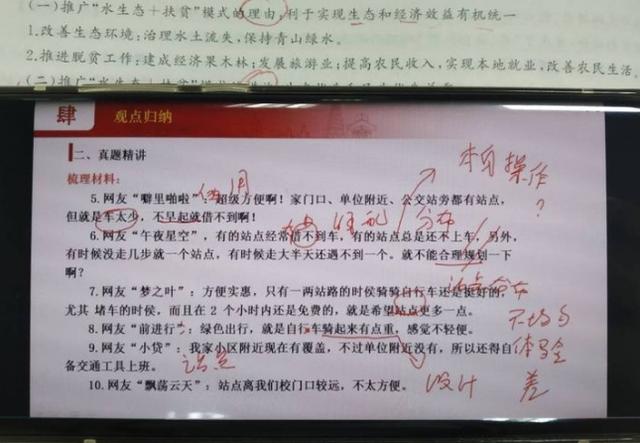 (一)推广“水生态＋扶贫”模式的理由:利于实现生态和经济效益有机统一
1.改善生态环境:治理水土流失,保持青山绿水。
2.推进脱贫工作:建成经济果木林;发展旅游业;提高农民收入,实现本地就业,改善农民生活,
(二)推广“水生态＋扶
肆 观点归纳
二、真题精讲
梳理材料：
5. 网友“噼里啪啦”：超级方便啊！家门口、单位附近、公交站旁都有站点，
但就是车太少，不早起就借不到啊！
6. 网友“午夜星空”，有的站点经常借不到车，有的站点总是还不上车，另外，
有时候没走几步就一个站点，有时候走大半天还遇不到一个、就不能合理规划一下
啊？
7. 网友“梦之叶”：方便实惠，只有一两站路的时侯骑骑自行车还是挺好的，
尤其 堵车的时侯，而且在 2 个小时内还是免费的，就是希望站点更多一点。
8. 网友“前进行”：绿色出行，就是自行车骑起来有点重，感觉不轻便。
9. 网友“小贷”：我家小区附近现在有覆盖，不过单位附近没有，所以还得自
备交通工具上班。
10. 网友“飘荡云天”：站点离我们校门口较远，不太方便。
本身操作
？
分布
站点分布
不均匀
体验
差
站点
设计